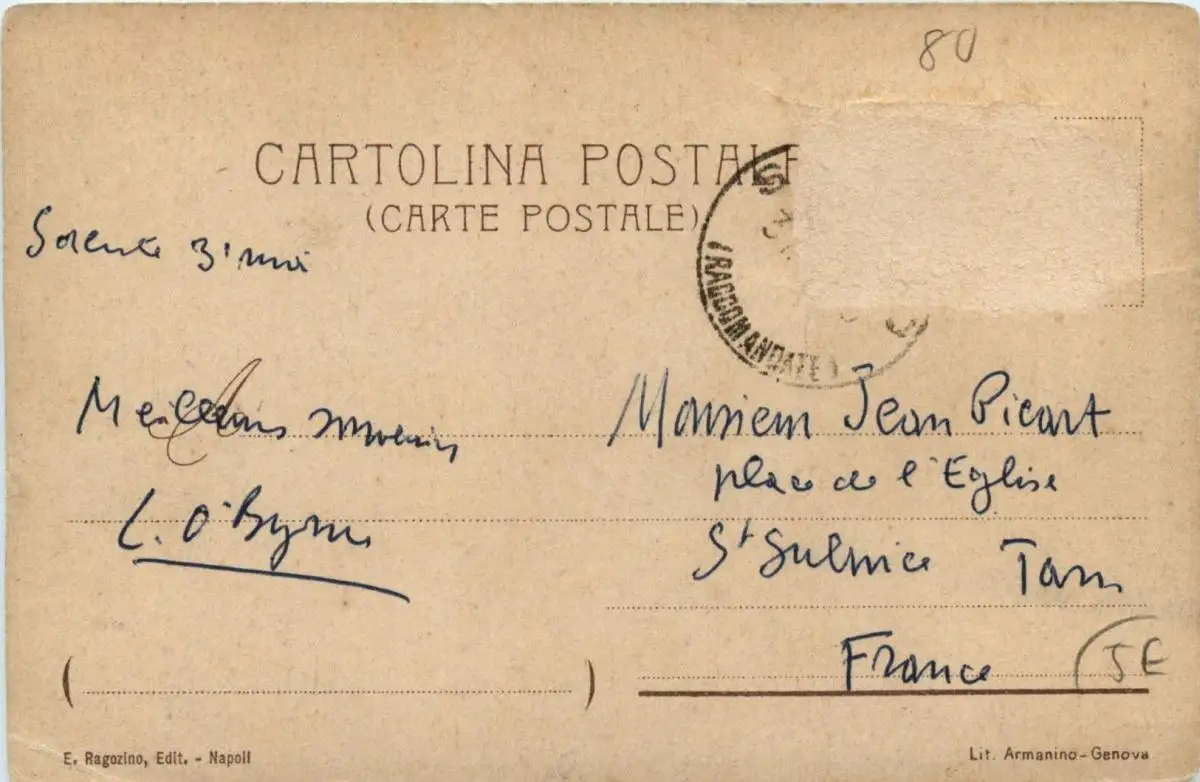 80
CARTOLINA POSTALE
(CARTE POSTALE)
(RACCOMANDATE)
Sorente 3 mai
Meilleurs souvenirs
L. O'Byrne
Monsieur Jean Picart
place de l'Eglise
St Sulpice Tarn
France
JE
E. Ragozino, Edit. - Napoli
Lit. Armanino-Genova